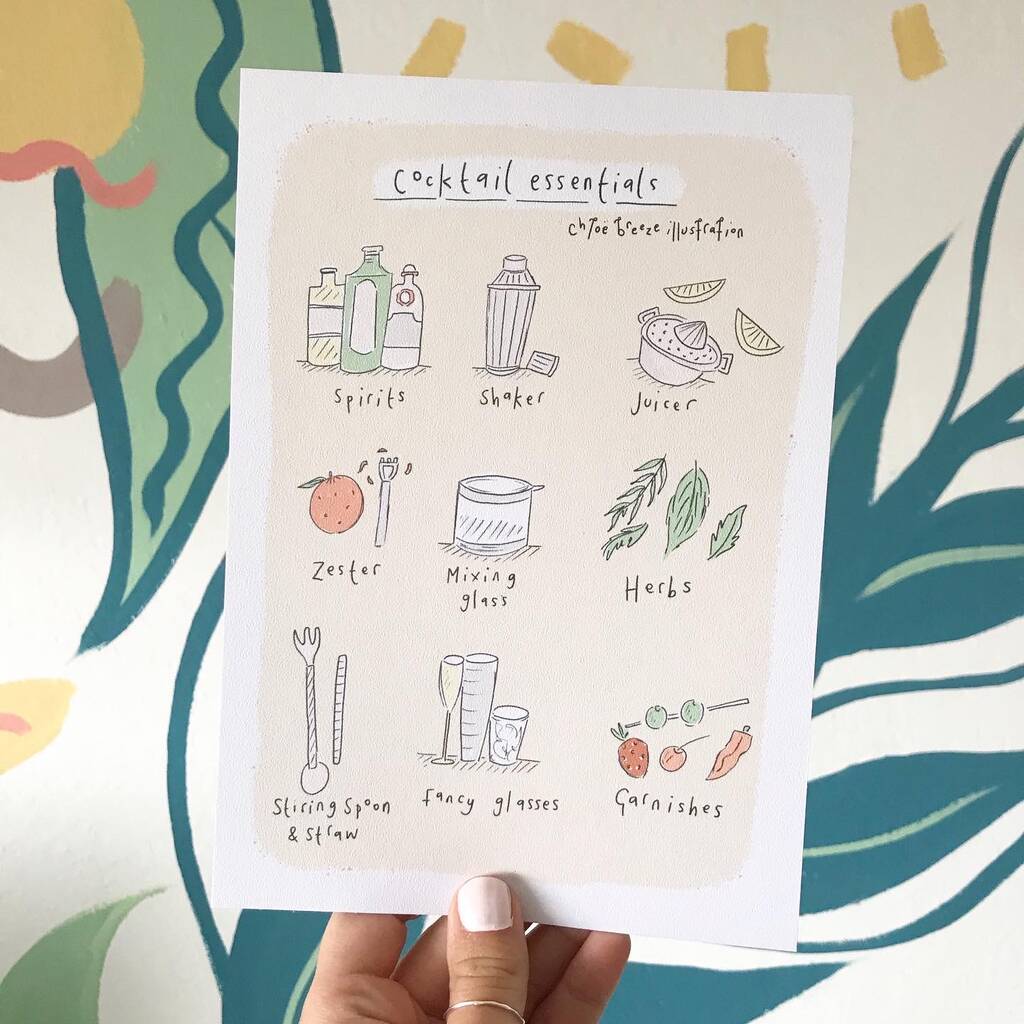 cocktail essentials
chloë breeze illustration
Spirits
Shaker
Juicer
Zester
Mixing
glass
Herbs
Stiring Spoon
& Straw
fancy glasses
Garnishes